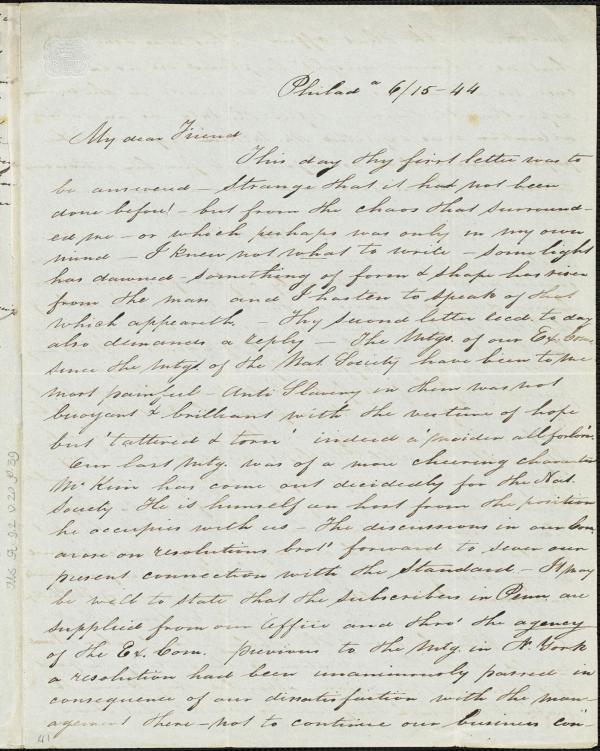 Philad.ª 6/15-44
My dear Friend
This day thy first letter was to
be answered - Strange that it had not been
done before! - but from the chaos that surround-
ed me - or which perhaps was only in my own
mind - I knew not what to write - some light
has dawned - something of form & shape has risen
from the mass and I hasten to speak of that
which appeareth. - Thy second letter recd. to day
also demands a reply - The Mtgs. of our Ex. Com.
since the mtgs. of the Nat. Society have been to me
most painful - Anti Slavery in them was not
buoyant & brilliant with the vesture of hope
but 'tattered & torn' indeed a 'maiden all forlorn'.
Our last mtg. was of a more cheering character
McKim has come out decidedly for the Nat.
Society - He is himself an host from the position
he occupies with us - The discussions in our Com.
arose on resolutions brot' forward to sever our
present connection with the Standard - It may
be well to state that the subscribers in Penn. are
supplied from our Office and thro' the agency
of the Ex. Com. previous to the Mtg. in N. York
a resolution had been unanimously passed - in
consequence of our dissatisfaction with the man-
agement there - not to continue our business con-
41